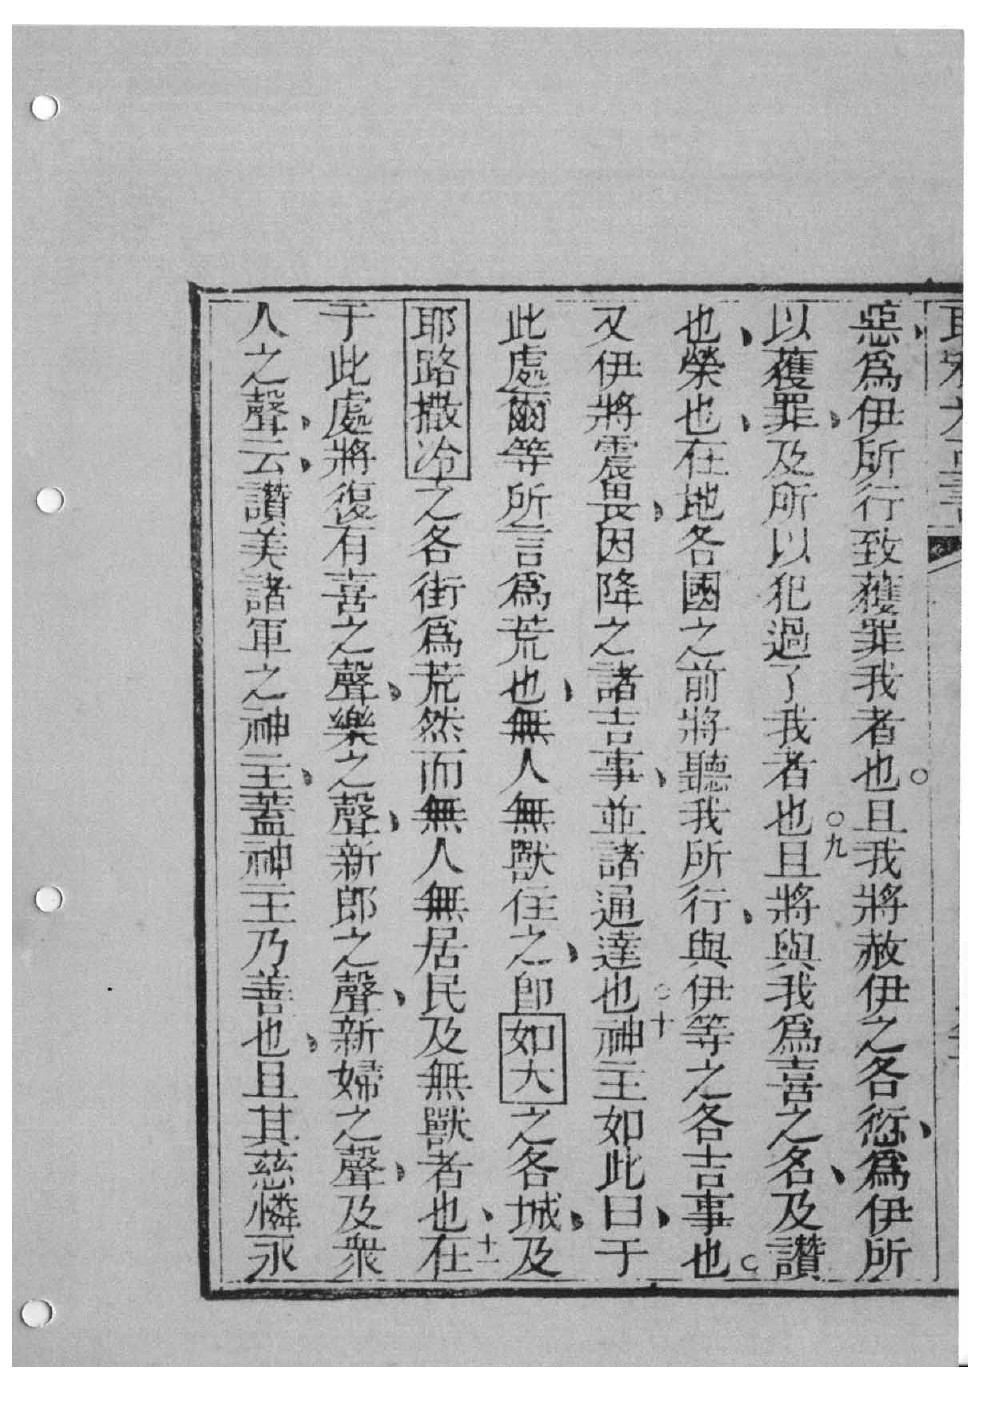 惡爲伊所行致獲罪我者也○且我將赦伊之各愆爲伊所
以獲罪及所以犯過了我者也○九且將與我爲喜之名及讚
也榮也在地各國之前將聽我所行與伊等之各吉事也○
又伊將震畏因降之諸吉事並諸通達也○十神主如此曰于
此處爾等所言爲荒也無人無獸住之卽如大之各城及
耶路撒冷之各街爲荒然而無人無居民及無獸者也十一在
于此處將復有喜之聲樂之聲新郎之聲新婦之聲及衆
人之聲云讚美諸軍之神主蓋神主乃善也且其慈憐永